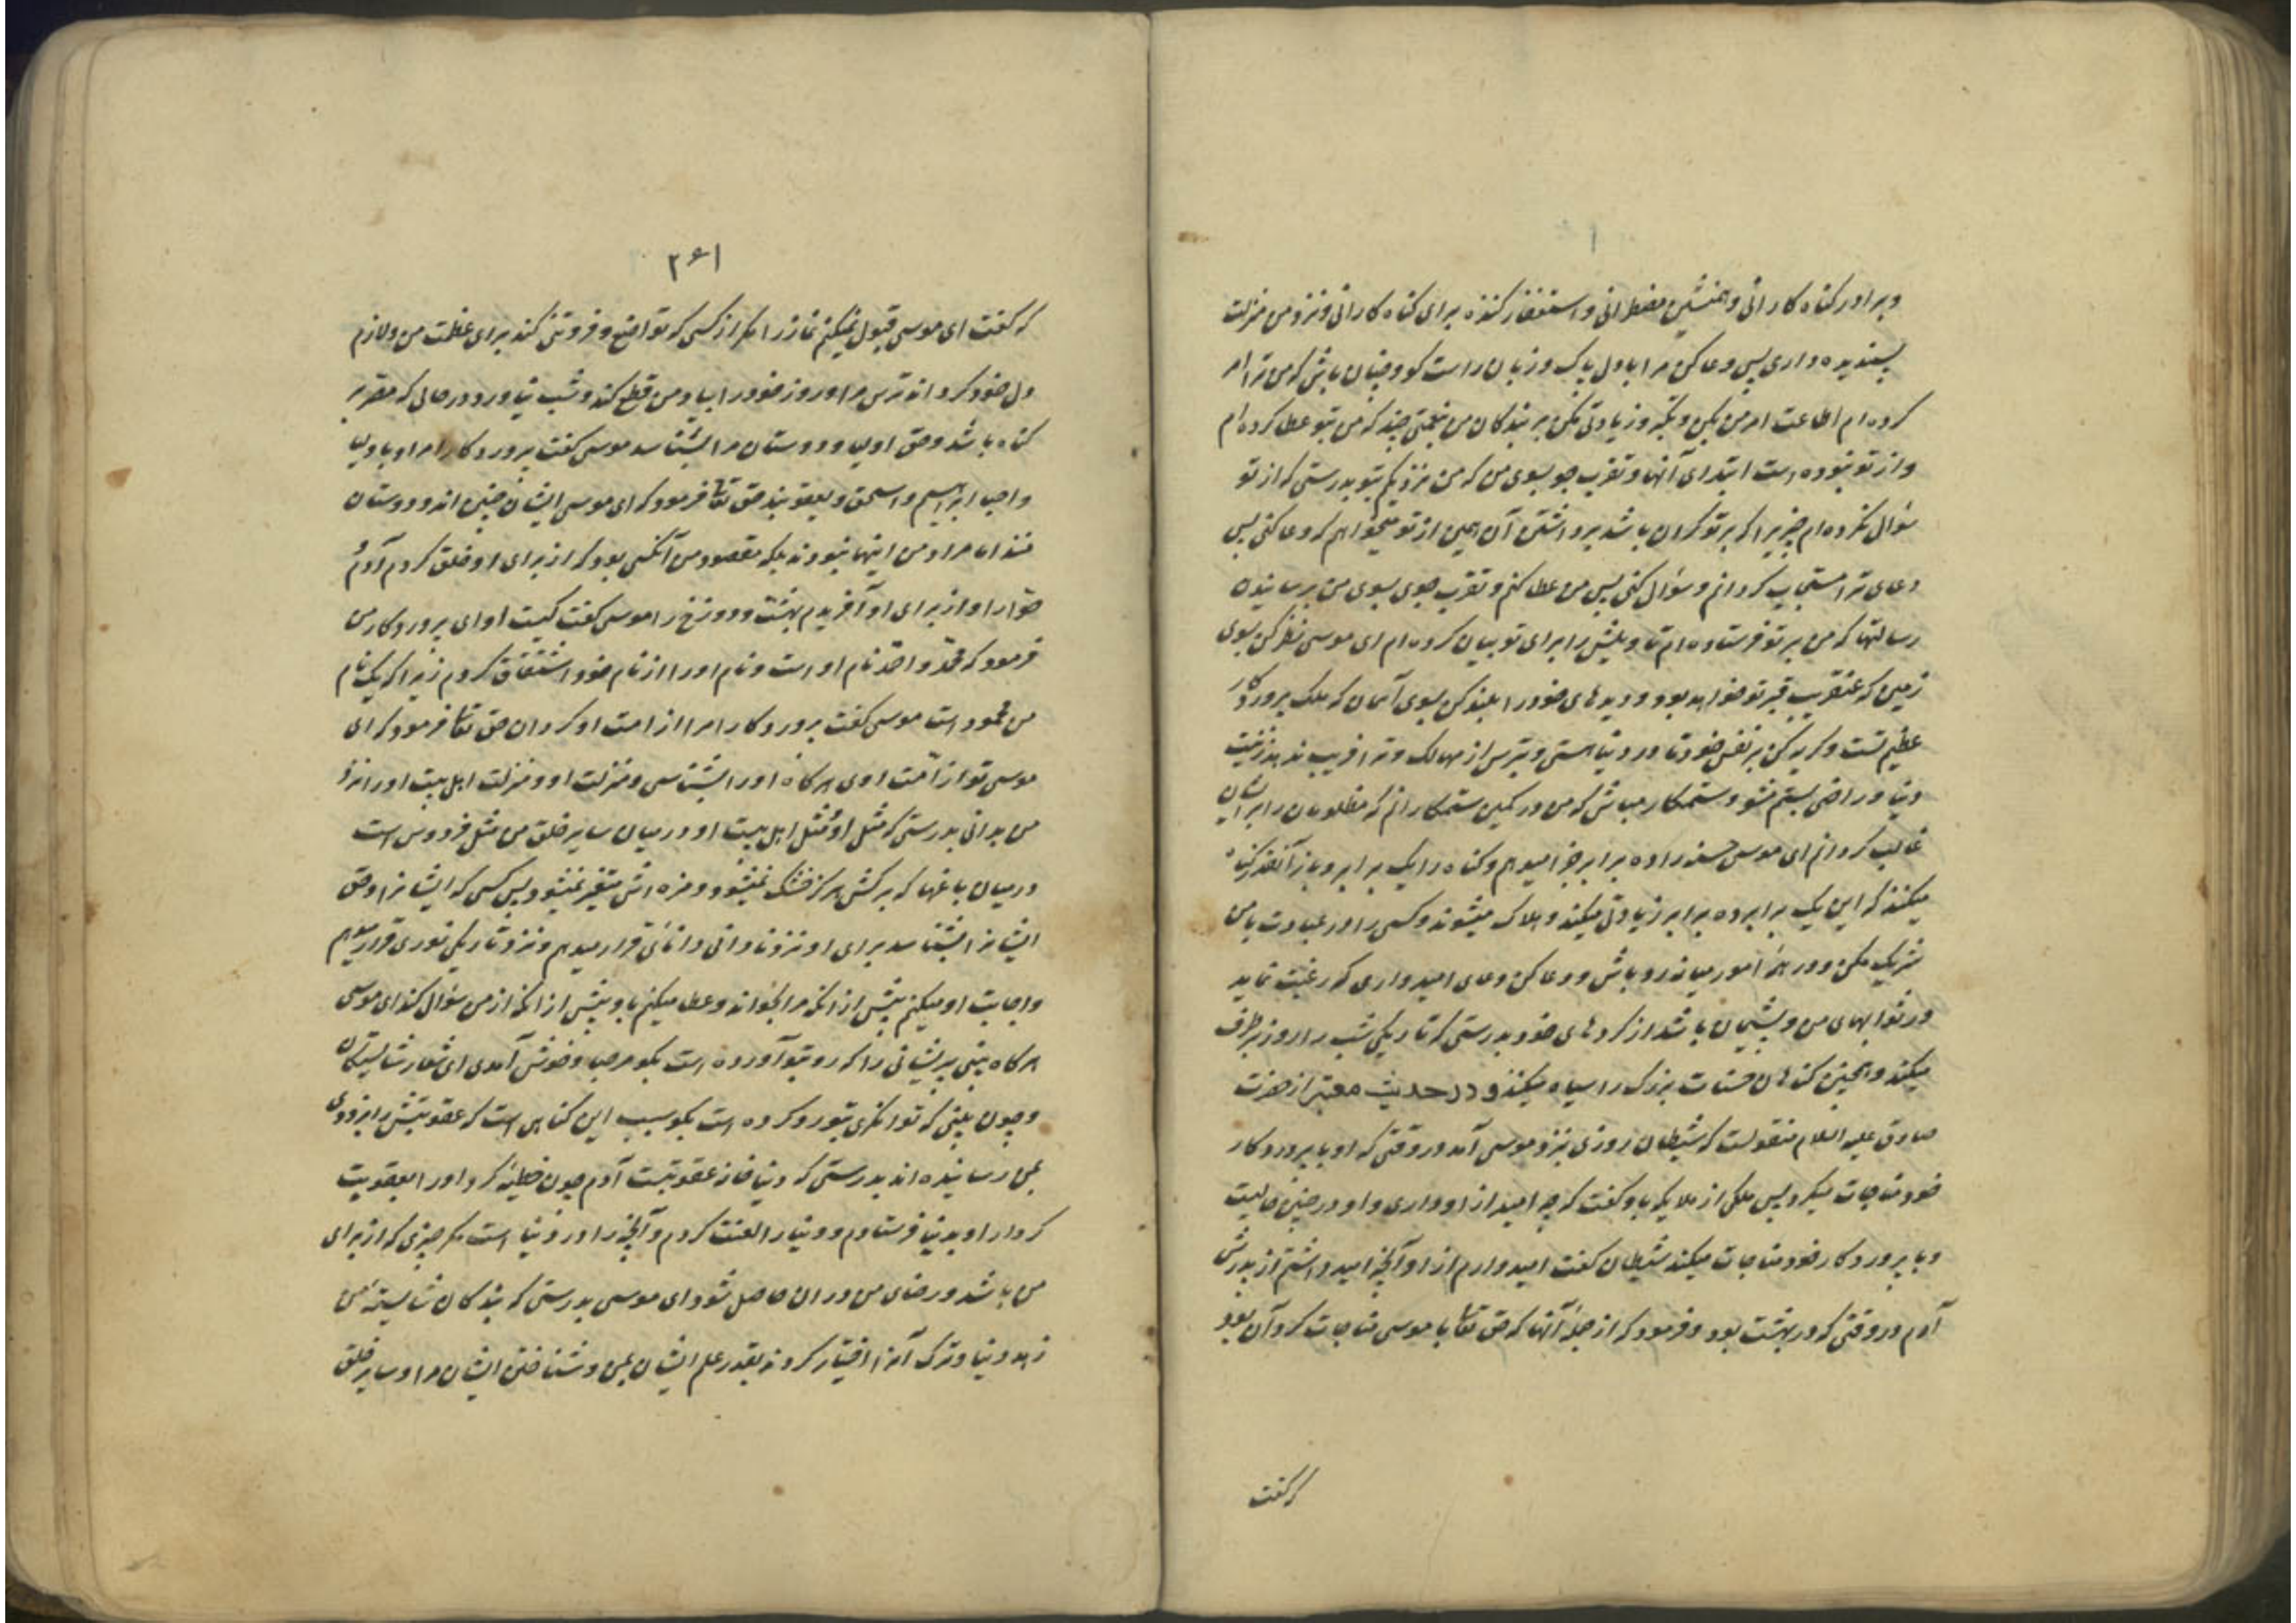 وبرادر کناه کارانی وهمنشین مضطرانی واستغفار کننده برای کناه کارانی ونزد من منزلت
پسندیده داری پس دعا کن مرا با دل پاک وزبان راست کو وچنان باش که من ترا امر
کرده ام اطاعت امر من بکن وتکبر وزیادتی مکن بر بندکان من بنعمتی چند که من بتو عطا کرده ام
واز تو نبوده است ابتدای آنها وتقرب جو بسوی من که من نزدیکم بتو بدرستی که از تو
سؤال نکرده ام چیزیرا که بر تو کران باشد برداشتن آن همین از تو میخواهم که دعا کنی پس
دعای ترا مستجاب کردانم وسؤال کنی پس من عطا کنم وتقرب جوی بسوی من برسانیدن
رسالتها که من بر تو فرستاده ام تاویلش را برای تو بیان کرده ام ای موسی نظر کن بسوی
زمین که عنقریب قبر تو خواهد بود ودیدهای خود را بلند کن بسوی آسمان که ملک پروردکار
عظیم تست وکریه کن بر نفس خود تا در دنیا هستی وبترس از مهالک وترا فریب ندهد زینت
دنیا وراضی بستم مشو وستمکار مباش که من در کمین ستمکارانم که مظلومان را بر ایشان
غالب کردانم ای موسی حسنه را ده برابر جزا میدهم وکناه را یک برابر وباز آنقدر کناه
میکنند که این یک برابر بر ده برابر زیادتی میکند وهلاک میشوند وکسی را در عبادت با من
شریک مکن ودر همه امور میانه رو باش ودعا کن دعای امیدواری که رغبت نماید
در ثوابهای من وپشیمان باشد از کردهای خود بدرستی که تاریکی شب را روز برطرف
میکند وهمچنین کناهان حسنات بزرک را سیاه میکنند ودر حدیث معتبر از حضرت
صادق علیه السلام منقولست که شیطان روزی نزد موسی آمد در وقتی که او با پروردکار
خود مناجات میکرد پس ملکی از ملایکه باو کفت که چه امید از او داری واو در چنین حالیست
وبا پروردکار خود مناجات میکند شیطان کفت امید دارم از او آنچه امید داشتم از پدرش
آدم در وقتی که در بهشت بود وفرمود که از جمله آنها که حق تعالی با موسی مناجات کرد آن بود
که کفت
۲۶۱
که کفت ای موسی قبول نمیکنم نماز را مکر از کسی که تواضع وفروتنی کند برای عظمت من ولازم
دل خود کرداند ترس مرا وروز خود را بیاد من قطع کند وشب نیاورد در حالی که مصر بر
کناه باشد وحق اولیا ودوستان مرا بشناسد موسی کفت پروردکارا مراد باولیا
واحبا ابراهیم واسحق ویعقوبند حق تعالی فرمود که ای موسی ایشان چنین اند ودوستان
منند اما مراد من اینها نبودند بلکه مقصود من آنکسی بود که از برای او خلق کردم آدم و
حوا را واز برای او آفریدم بهشت ودوزخ را موسی کفت کیست او ای پروردکار من
فرمود که محمد واحمد نام او است ونام او را از نام خود اشتقاق کردم زیرا که یک نام
من محمود است موسی کفت پروردکارا مرا از امت او کردان حق تعالی فرمود که ای
موسی تو از امت اوی هرکاه او را بشناسی ومنزلت او ومنزلت اهل بیت او را نزد
من بدانی بدرستی که مثل او ومثل اهل بیت او در میان سایر خلق من مثل فردوس است
در میان باغها که برکش هرکز خشک نمیشود ومزه اش متغیر نمیشود پس کسی که ایشانرا وحق
ایشانرا بشناسد برای او نزد نادانی دانائی قرار میدهم ونزد تاریکی نوری قرار میدهم
واجابت او میکنم پیش از آنکه مرا بخواند وعطا میکنم باو پیش از آنکه از من سؤال کند ای موسی
هرکاه بینی پریشانی را که رو بتو آورده است بکو مرحبا وخوش آمدی ای شعار شایستکان
وچون بینی که توانکری بتو رو کرده است بکو سبب این کناهی است که عقوبتش را بزودی
بمن رسانیده اند بدرستی که دنیا خانه عقوبتست آدم چون خطیئه کرد او را بعقوبت
کردار او بدنیا فرستادم ودنیا را لعنت کردم وآنچه را در دنیا است مکر چیزی که از برای
من باشد ورضای من در ان حاصل شود ای موسی بدرستی که بندکان شایسته من
زهد دنیا وترک آنرا اختیار کردند بقدر علم ایشان بمن وشناختن ایشان مرا وسایر خلق